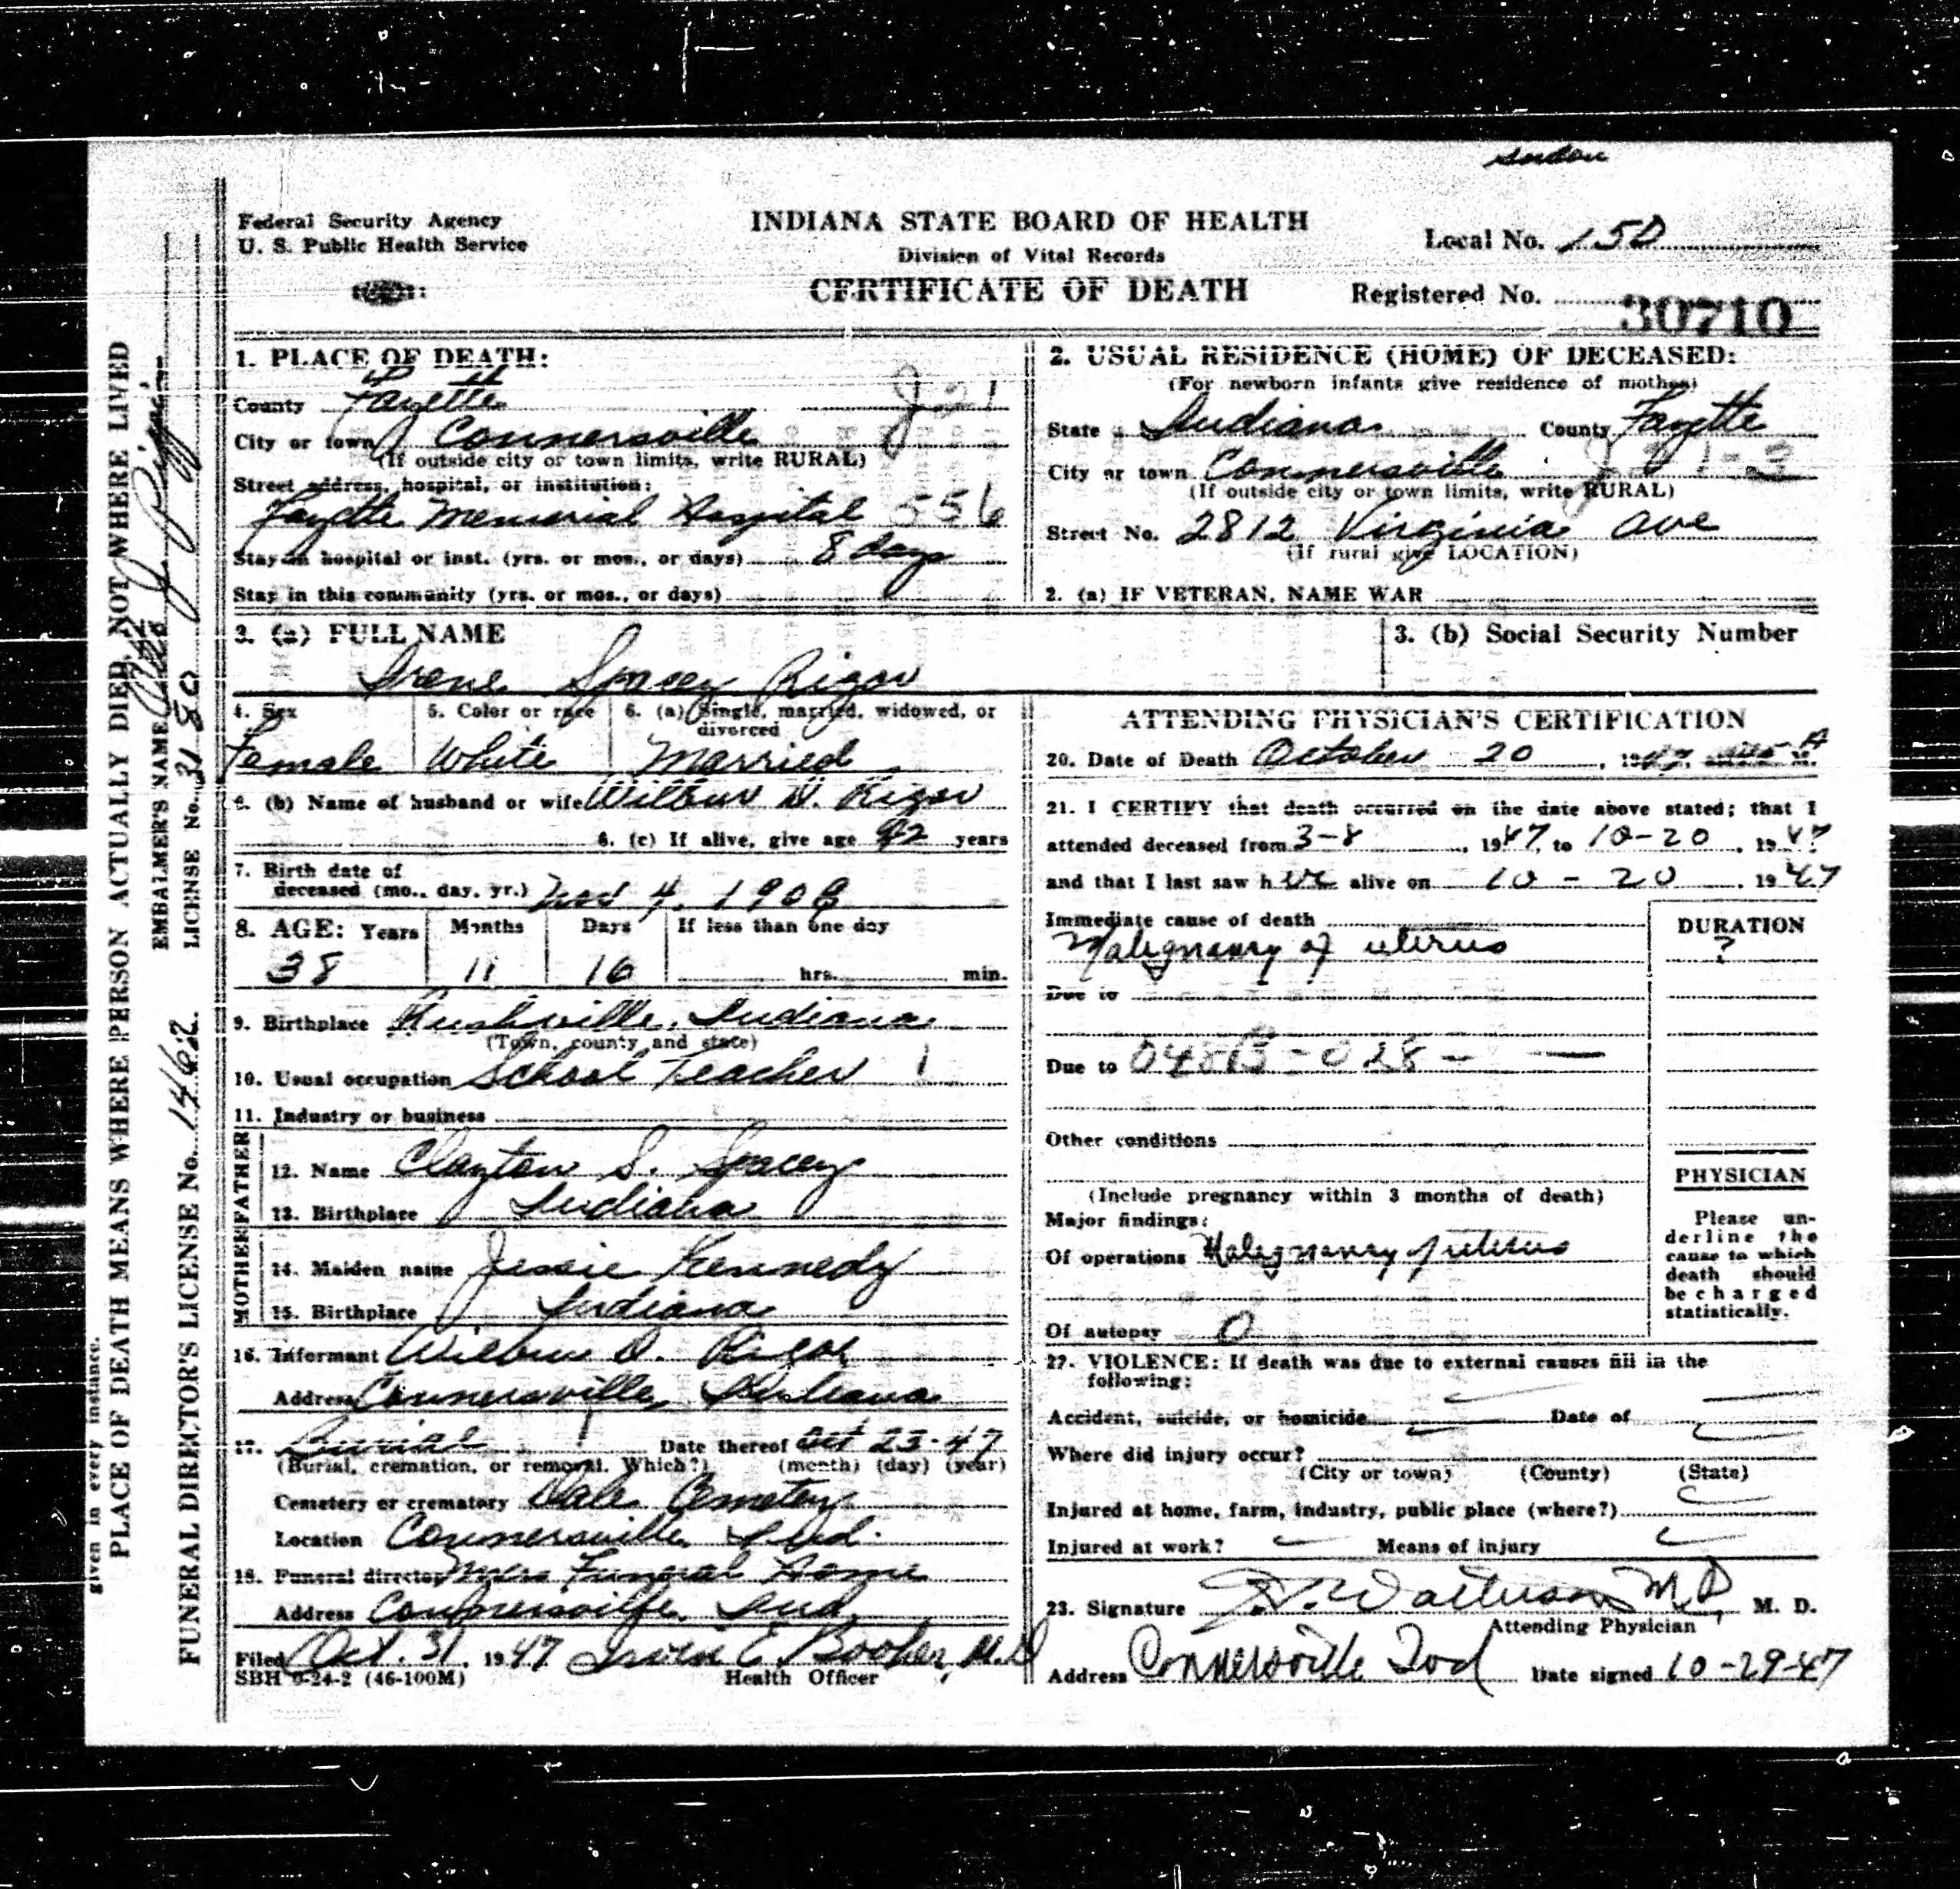 Federal Security Agency
U. S. Public Health Service
INDIANA STATE BOARD OF HEALTH
Division of Vital Records
CERTIFICATE OF DEATH
Local No. 150
Registered No. 30710
1. PLACE OF DEATH:
County Fayette
City or town Connersville
(If outside city or town limits, write RURAL)
Street address, hospital, or institution:
Fayette Memorial Hospital 556
Stay in hospital or inst. (yrs. or mos., or days) 8 days
Stay in this community (yrs. or mos., or days)
2. USUAL RESIDENCE (HOME) OF DECEASED:
(For newborn infants give residence of mother)
State Indiana County Fayette
City or town Connersville
(If outside city or town limits, write RURAL)
Street No. 2812 Virginia Ave
(If rural give LOCATION)
2. (a) IF VETERAN, NAME WAR
3. (a) FULL NAME
Irene Spacey Rigor
3. (b) Social Security Number
4. Sex
Female
5. Color or race
White
6. (a) Single, married, widowed, or
divorced
Married
6. (b) Name of husband or wife Wilbur D. Rigor
6. (c) If alive, give age 42 years
7. Birth date of
deceased (mo., day, yr.) Nov 4, 1908
8. AGE: Years Months Days If less than one day
38 11 16 hrs. min.
9. Birthplace Rushville, Indiana
(Town, county and state)
10. Usual occupation School Teacher
11. Industry or business
FATHER
12. Name Clayton S. Spacey
13. Birthplace Indiana
MOTHER
14. Maiden name Jessie Kennedy
15. Birthplace Indiana
16. Informant Wilbur D. Rigor
Address Connersville, Indiana
17. Burial Date thereof Oct 23-47
(Burial, cremation, or removal. Which?) (month) (day) (year)
Cemetery or crematory Dale Cemetery
Location Connersville, Ind.
18. Funeral director Funeral Home
Address Connersville, Ind.
Filed Oct. 31, 1947 Irvin E. Booher, M.D
Health Officer
SBH 6-24-2 (46-100M)
ATTENDING PHYSICIAN'S CERTIFICATION
20. Date of Death October 20, 1947, A M.
21. I CERTIFY that death occurred on the date above stated; that I
attended deceased from 3-8, 1947, to 10-20, 1947
and that I last saw her alive on 10-20, 1947
Immediate cause of death
Malignancy of uterus
DURATION
?
Due to
Due to 048B-028-
Other conditions
(Include pregnancy within 3 months of death)
Major findings:
Of operations Malignancy of uterus
Of autopsy 0
PHYSICIAN
Please un-
derline the
cause to which
death should
be charged
statistically.
22. VIOLENCE: If death was due to external causes fill in the
following:
Accident, suicide, or homicide Date of
Where did injury occur?
(City or town) (County) (State)
Injured at home, farm, industry, public place (where?)
Injured at work? Means of injury
23. Signature M.D, M. D.
Attending Physician
Address Connersville Ind Date signed 10-29-47
given in every instance.
PLACE OF DEATH MEANS WHERE PERSON ACTUALLY DIED, NOT WHERE LIVED
EMBALMER'S NAME
LICENSE No. 3180
FUNERAL DIRECTOR'S LICENSE No. 1462